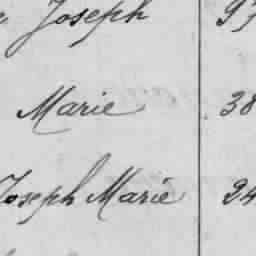 Joseph 97
Marie 38
Joseph Marie 24